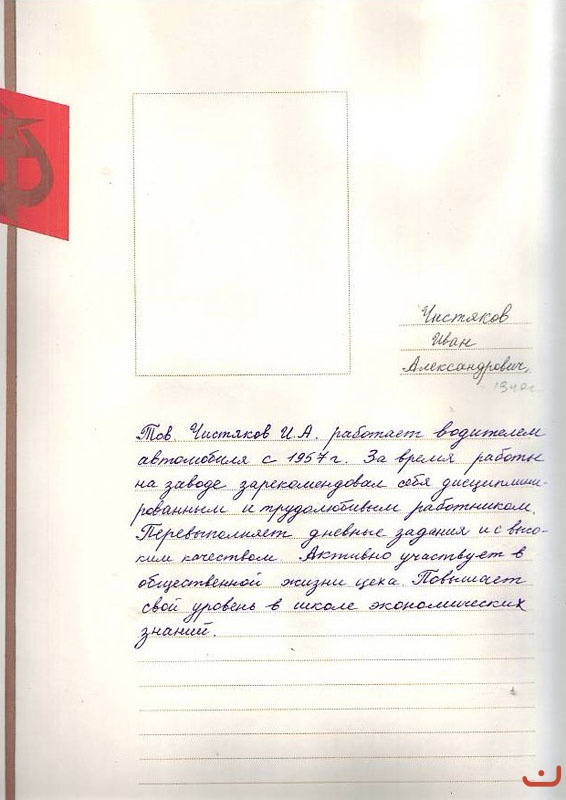 Чистяков
Иван
Александрович,
Тов. Чистяков И.А. работает водителем
автомобиля с 1957 г. За время работы
на заводе зарекомендовал себя дисциплини-
рованным и трудолюбивым работником.
Перевыполняет дневные задания и с высо-
ким качеством. Активно участвует в
общественной жизни цеха. Повышает
свой уровень в школе экономических
знаний.